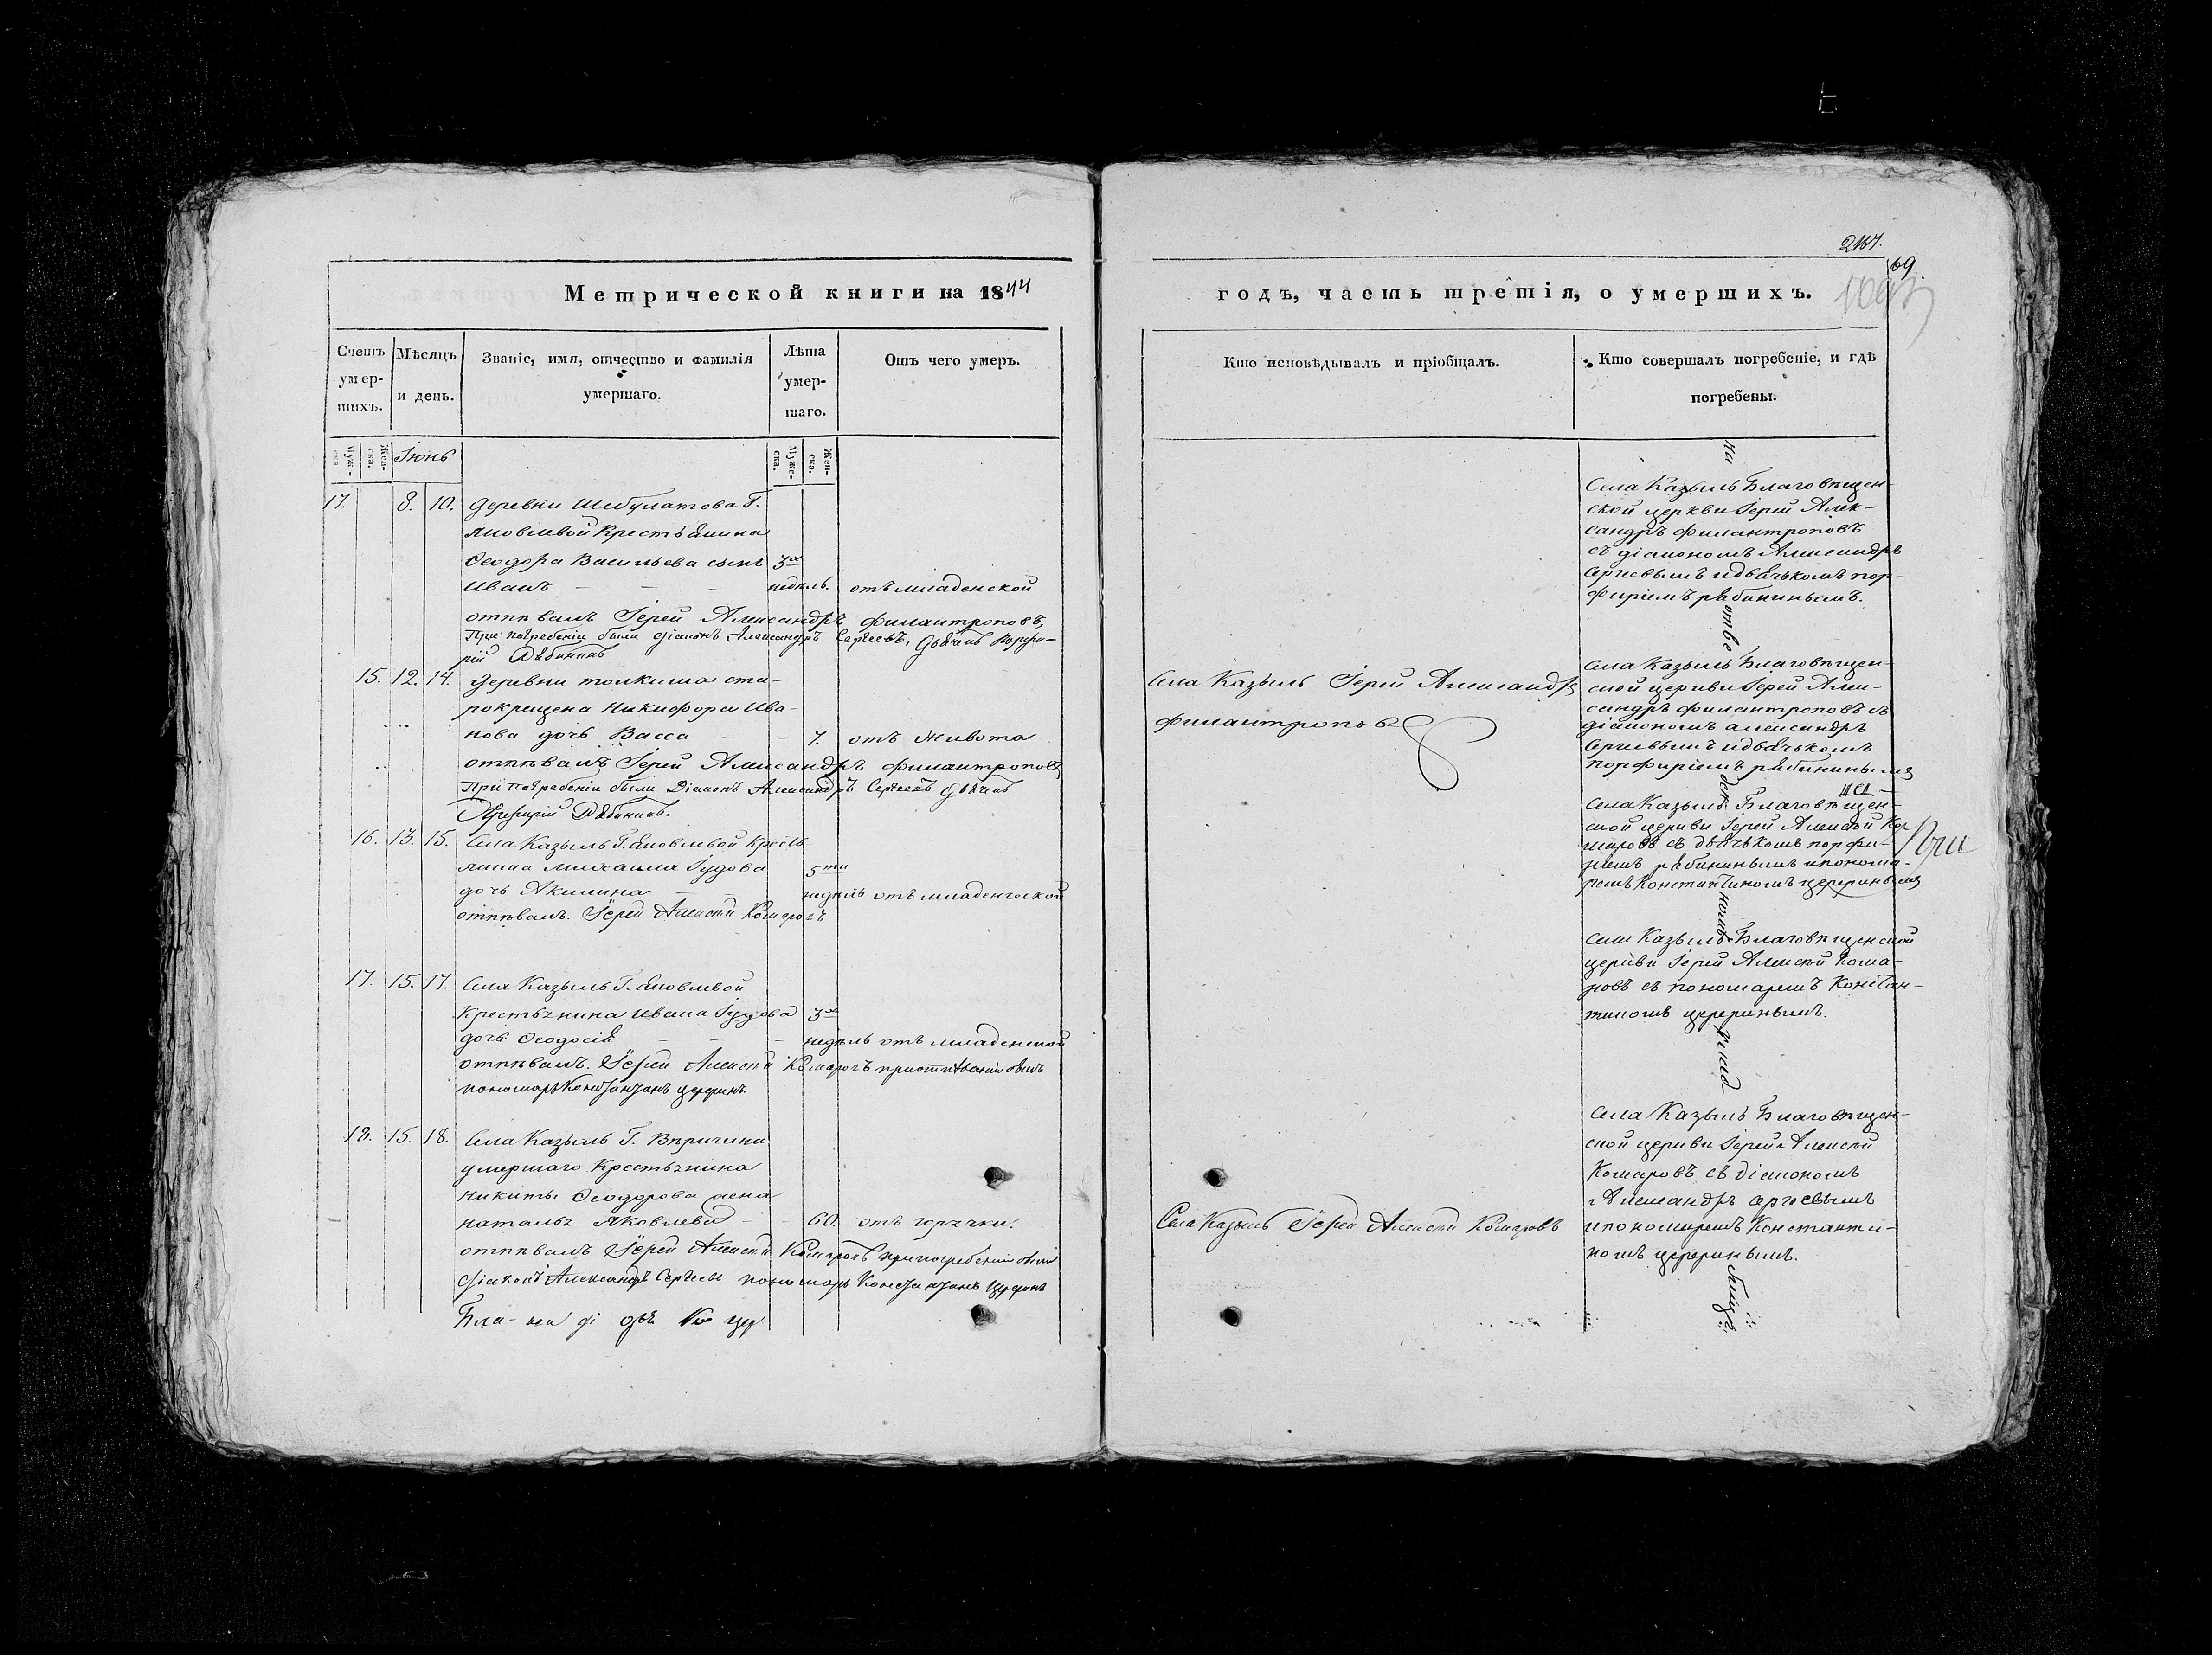 2187.
69
Метрической книги на 1844
годъ, часть третія, о умершихъ.
Счетъ умер-шихъ.
Мѣсяцъ и день.
Званіе, имя, отчество и фамилія умершаго.
Лѣта умер-шаго.
Отъ чего умеръ.
Кто исповѣдывалъ и пріобщалъ.
Кто совершалъ погребеніе, и гдѣ погребены.
Муже-ска.
Жен-ска.
Іюнь
Муже-ска.
Жен-ска.
17. 8. 10. Деревни Шебулатова Г.
Яковлевой Крестьянина
Ѳеодора Васильева сынъ 3х
Иванъ - - - недѣль. отъ младенской
отпѣвалъ Іерей Александръ Филантроповъ,
При погребеніи были діаконъ Александръ Сергеевъ, Дьячекъ Порфи-
рій Рябининъ
Села Казыль Благовѣщен-
ской церкви Іерей Алек-
сандръ Филантроповъ
съ діакономъ Александръ
Сергіевымъ и дьячькомъ пор-
фиріемъ рябининымъ.
15. 12. 14. Деревни толкиша ста-
рокрещена Никифора Ива-
нова дочь Васса - - 7. отъ живота
отпѣвалъ Іерей Александръ Филантроповъ
При погребеніи были Діаконъ Александръ Сергеевъ Дьячекъ
Порфирій Рябининъ.
Села Казыль Іерей Александръ
Филантропов
Села Казыль Благовѣщен-
ской церкви Іерей Алек-
сандръ Филантроповъ съ
діакономъ александръ
Сергіевымъ и дьячькомъ
порфиріемъ рябининымъ
16. 13. 15. Села Казыль Г. Яковлевой Кресть
янина Михаила Гудова 5ти
дочь Акилина - - недѣль отъ младенческой
отпѣвалъ. Іерей Алексѣй Комаровъ
Села Казыль Благовѣщен-
ской церкви Іерей Алексѣй Ко
маровъ съ дьячькомъ порфи-
ріемъ рябининымъ и понома-
ремъ Константиномъ церериннымъ
17. 15. 17. Села Казыль Г. Яковлевой
Крестьянина Ивана Гудова 3х
дочь Ѳеодосія - - - недѣль отъ младенской
отпѣвалъ. Іерей Алексѣй Комаровъ при отпѣваніи былъ
пономарь Константинъ
Села Казыль Благовѣщенской
церкви Іерей Алексѣй Кома-
ровъ съ пономаремъ Констан-
тиномъ
18. 15. 18. Села Казыль Г. Вѣригина
умершаго Крестьянина
Никиты Ѳеодорова жена
наталья Яковлева - - 60. отъ горячки.
отпѣвалъ Іерей Алексѣй Комаровъ при погребеніи были
діаконъ Александръ Сергеевъ пономарь Константинъ
Села Казыль Іерей Алексѣй Комаровъ
Села Казыль Благовѣщен-
ской церкви Іерей Алексѣй
Комаровъ съ діакономъ
Александръ Сергіевымъ
и пономаремъ Константи-
номъ
на отве ден номъ клад бищѣ.